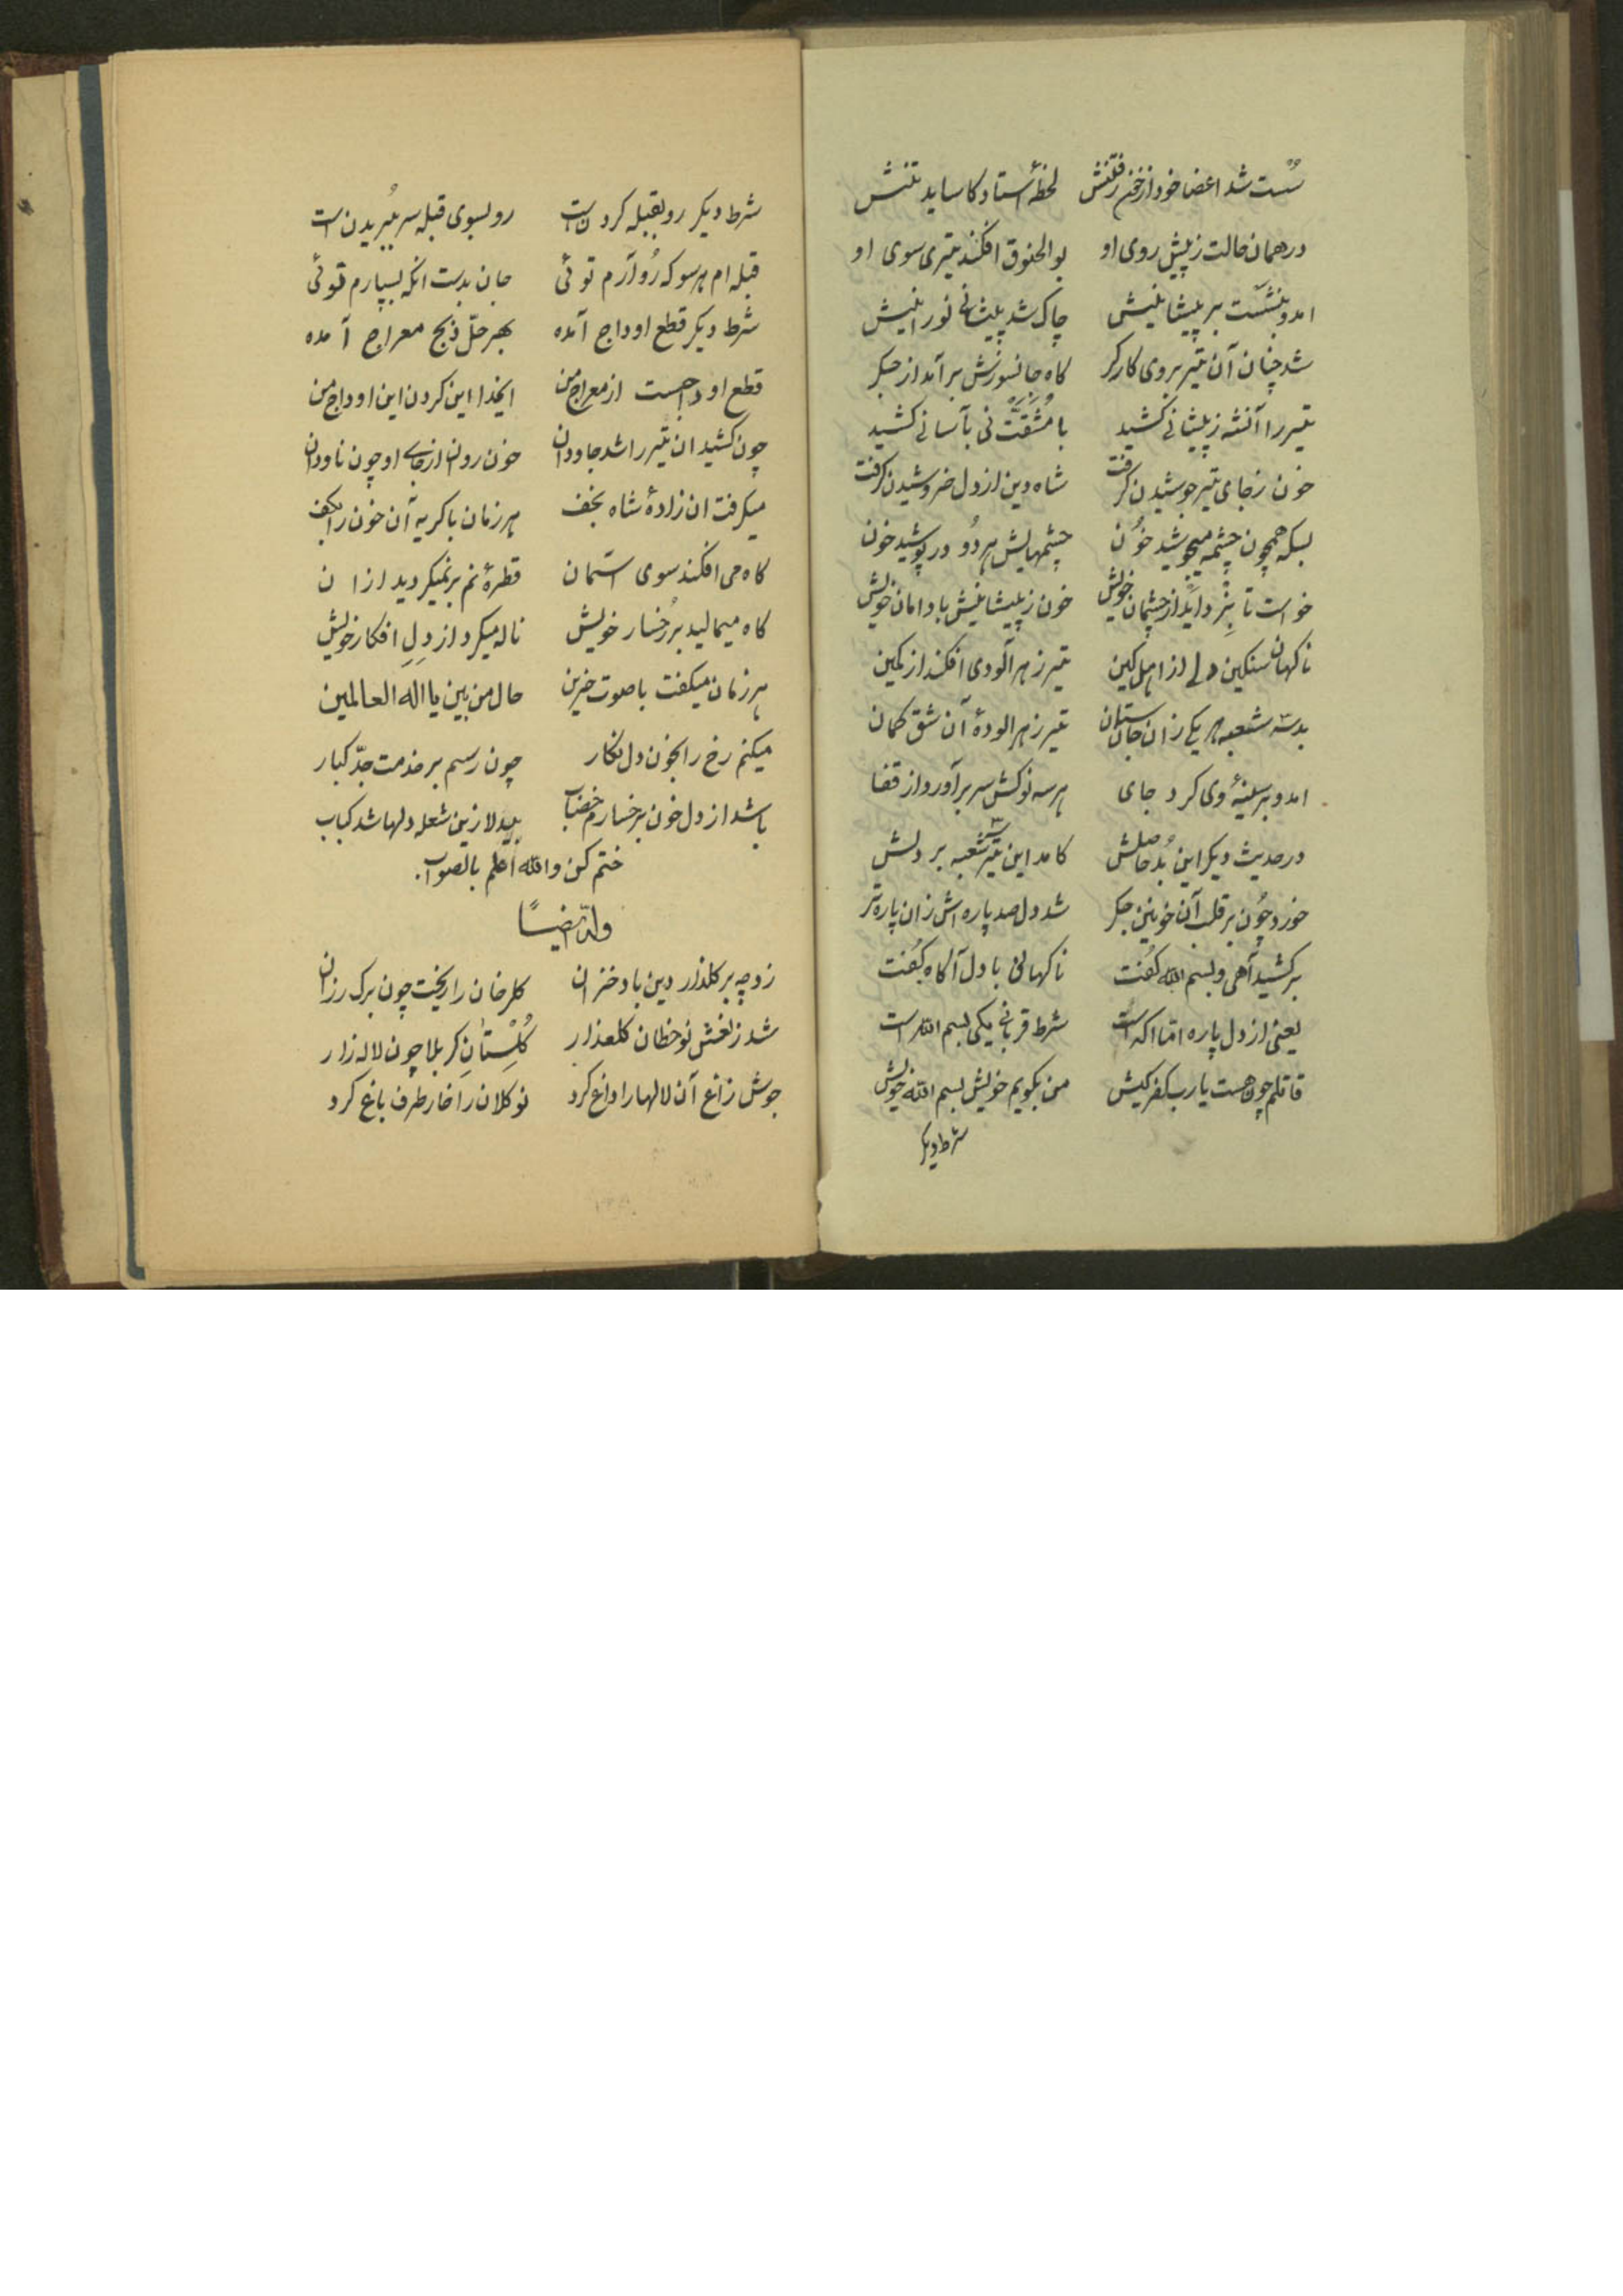 سُست شد اعضا خود از خون رفتنش لحظهٔ استاد کاساید تنش
در همان حالت ز پیش روی او بوالحنوق افکند تیری سوی او
امد و بنشست بر پیشانیش چاک شد پیشانی نورانیش
شد چنان آن تیر بر وی کارکر کاه جانسوزش بر آمد از جکر
تیر را آنشه ز پیشانی کشید با مُشَقَّت نی بآسانی کشید
خون ز جای تیر جوشیدن کرفت شاه دین از دل خروشیدن کرفت
بسکه همچون چشمه میجوشید خون چشمهایش هر دُو در پوشید خون
خواست تا بزداید از چشمان خویش خون ز پیشانیش با دامان خویش
ناکهان سنکین دلی از اهل کین تیر زهر آلودی افکند از کمین
بد سه شعبه هر یکی زان جانستان تیر زهر الودهٔ آن شق کمان
امد و بر سینهٔ وی کرد جای هر سه نوکش سر بر آورد از قفا
در حدیث دیکر این بُد حاصلش کامد این تیر سه شعبه بر دلش
خورد چُون بر قلب آن خونین جکر شد دل صد پاره اش زان پاره تر
بر کشید آهی و بسم الله کفت ناکهانی با دل آکاه کفت
یعنی از دل پاره اما اکه است شرط قربانی یکی بسم الله است
قاتلم چون هست یا رب کفر کیش من بکویم خویش بسم الله خویش
شرط دیکر
شرط دیکر رو بقبله کردن است رو بسوی قبله سر بُبریدن است
قبله ام هر سو که رُو آرم توئی جان بدست انکه بسپارم توئی
شرط دیکر قطع اوداج آمده بهر حلّ ذبح معراج آمده
قطع اوداجست از معراج من ایخدا این کردن این اوداج من
چون کشید ان تیر را شد جاودان خون روان از جای او چون ناودان
میکرفت ان زادهٔ شاه نجف هر زمان با کریه آن خون را بکف
کاه می افکند سوی اسمان قطرهٔ نم بر نمیکردید از ان
کاه میمالید بر رُخسار خویش ناله میکرد از دلِ افکار خویش
هر زمان میکفت با صوت حزین حال من بین یا اله العالمین
میکنم رخ را بخون دل نکار چون رسم بر خدمت جدّ کبار
باشد از دل خون بر خسارم خضاب بیدلا زین شعله دلها شد کباب
ختم کن والله اعلم بالصواب.
وله ایضاً
زد چه بر کلذار دین باد خزان کلرخان را ریخت چون برک رزان
شد ز نعش نو خطان کلعذار کُلِستٰانِ کربلا چون لاله زار
جوش زاغ آن لالها را داغ کرد نو کلان را خار طرف باغ کرد